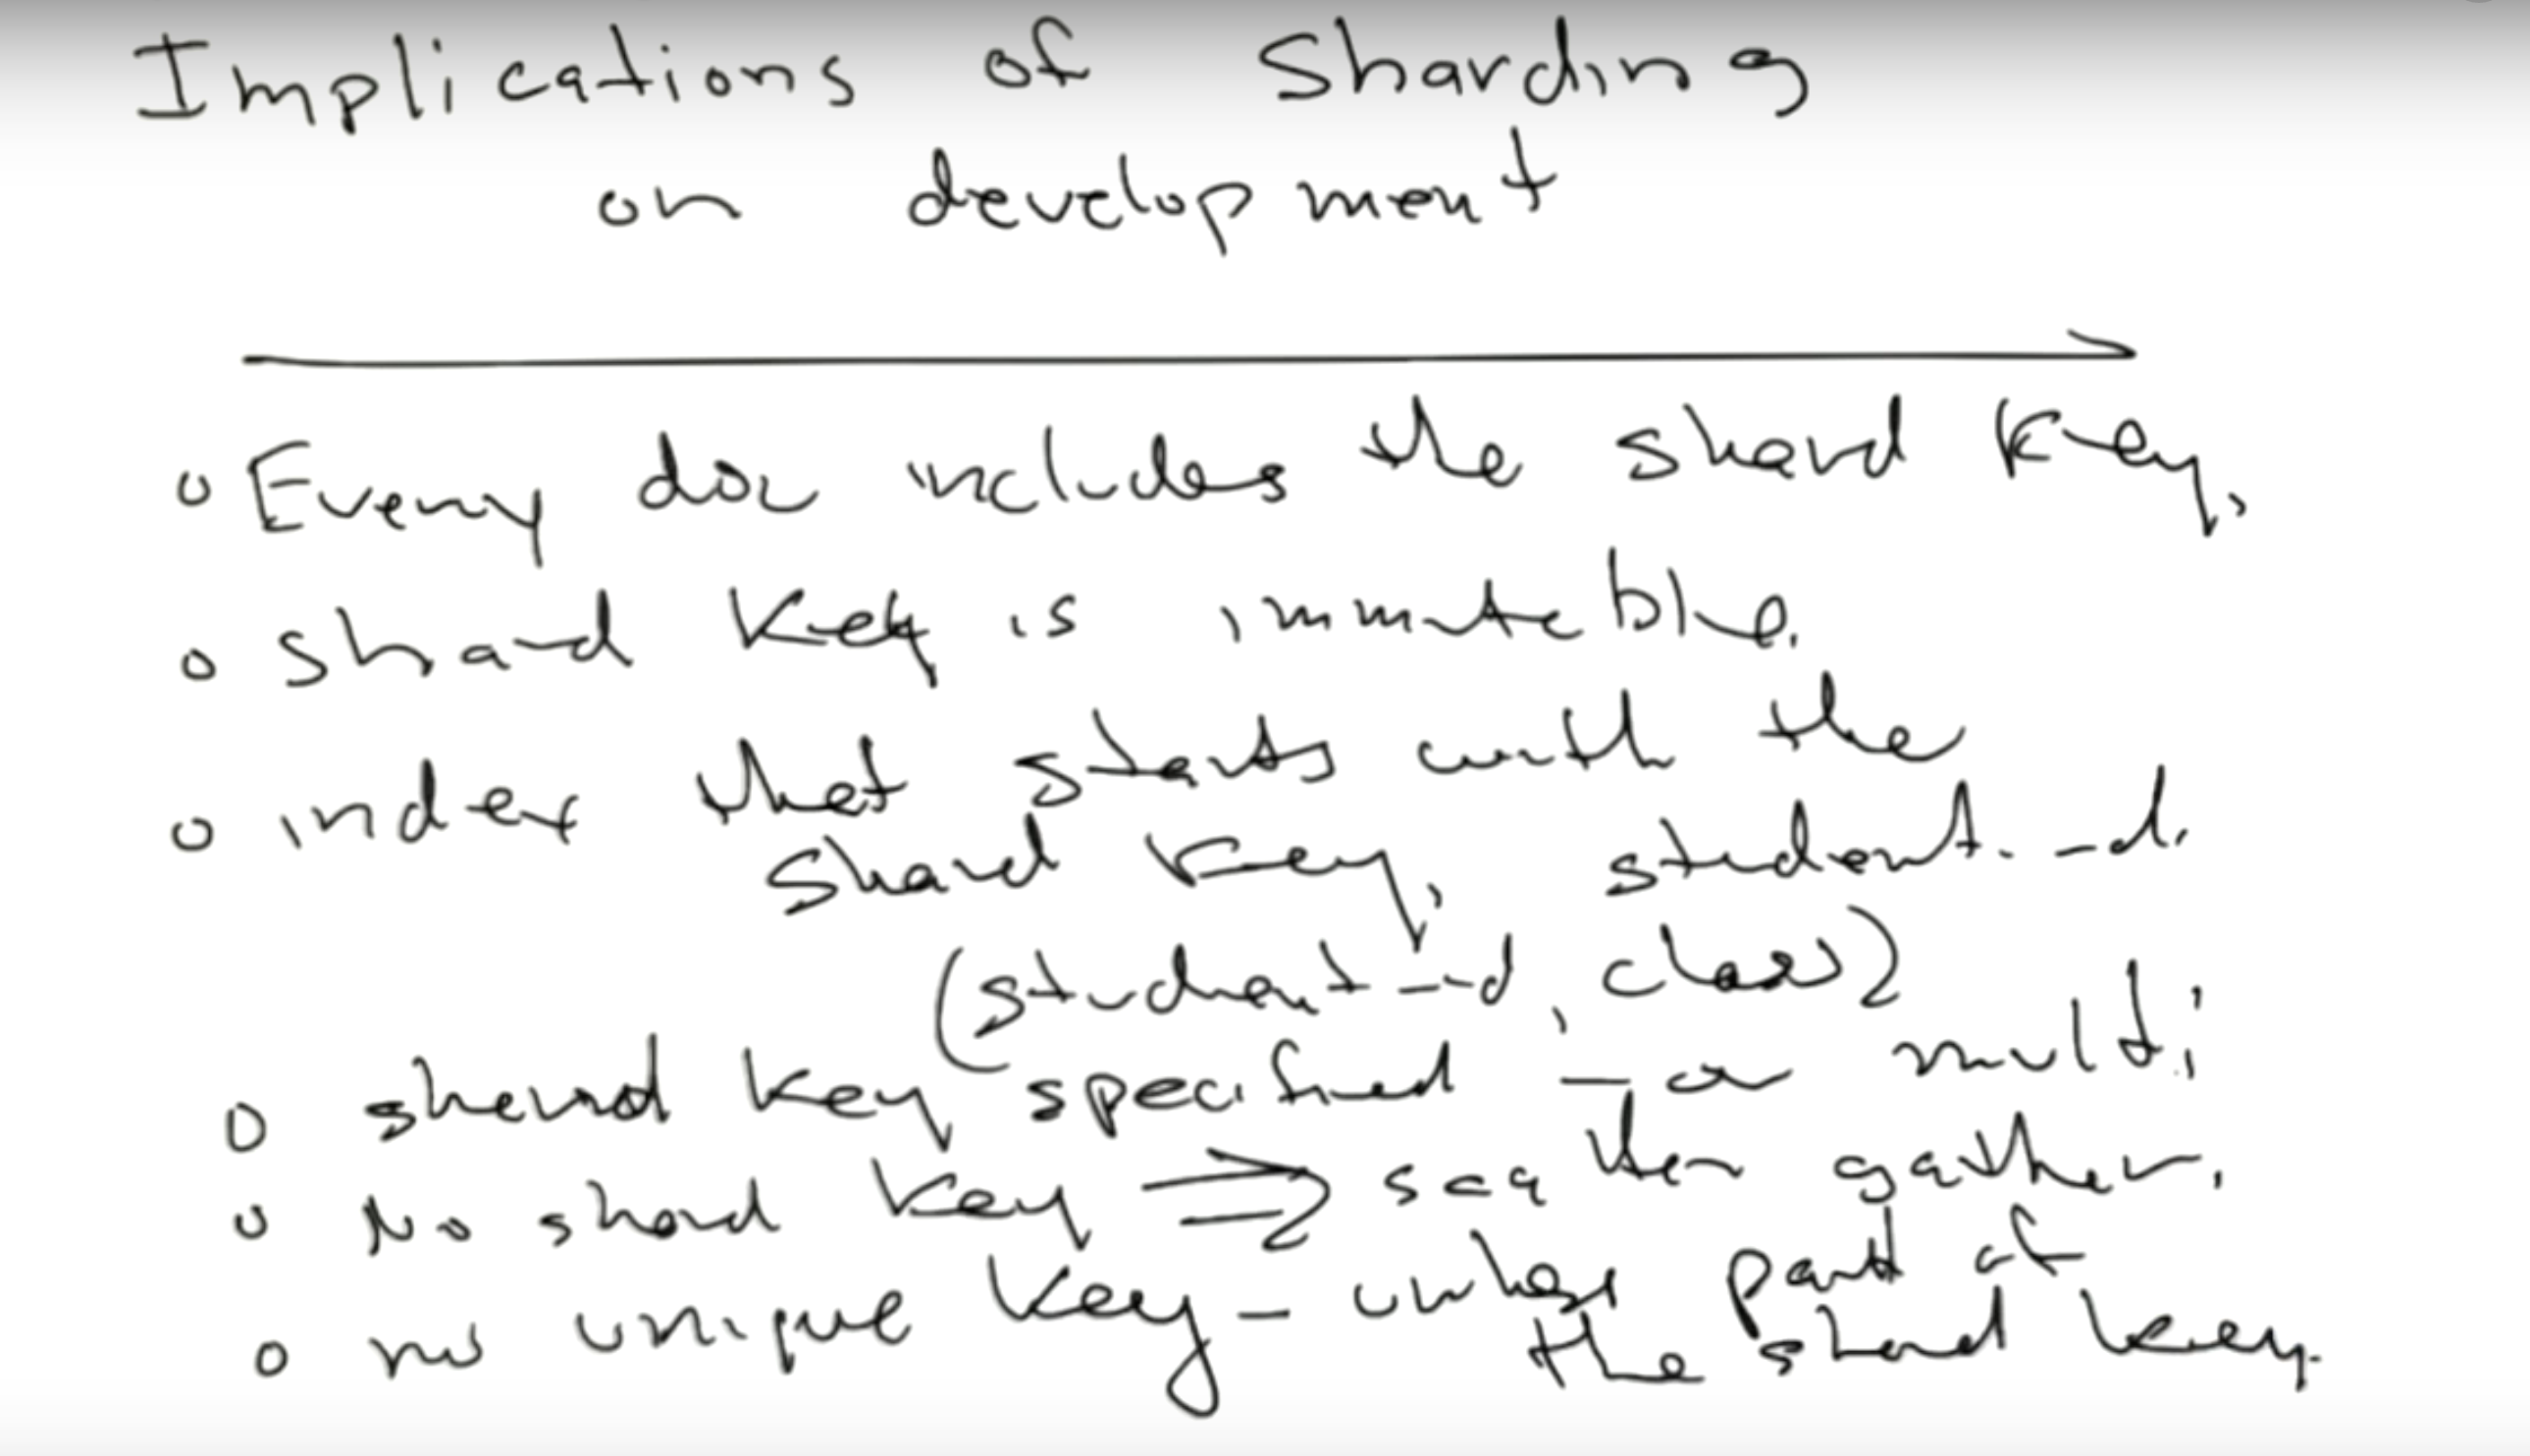 Implications of Sharding
on development
Every doc includes the shard key.
shard key is immutable.
index that starts with the
shard key. student_id.
(student_id, class)
shard key specified - or multi
No shard key ⇒ scatter gather.
no unique key - unless part of
the shard key.